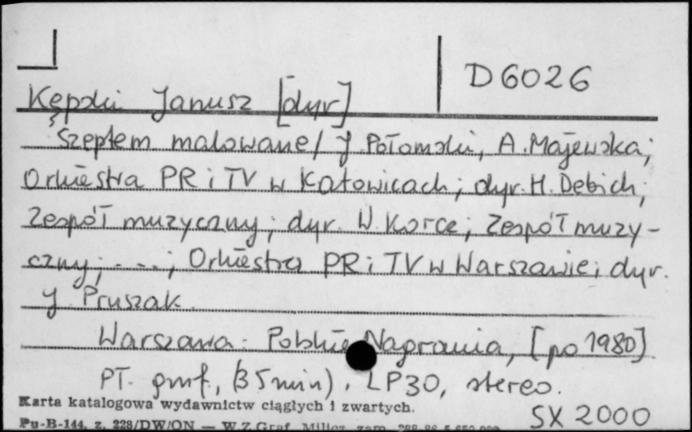 D6026
Kępski Janusz [dyr]
Szeptem malowane / J. Połomski, A. Majewska;
Orkiestra PR i TV w Katowicach; dyr. H. Debich;
Zespół muzyczny; dyr. W. Korcz; Zespół muzy-
czny; ...; Orkiestra PR i TV w Warszawie; dyr.
J. Pruszak
Warszawa: Polskie Nagrania, [po 1980]
PT. gmf, (35 min), LP30, stereo.
Karta katalogowa wydawnictw ciągłych i zwartych.
SX 2000
Pu-B-144, z. 228/DW/ON — W.Z.Graf. Milicz, zam.